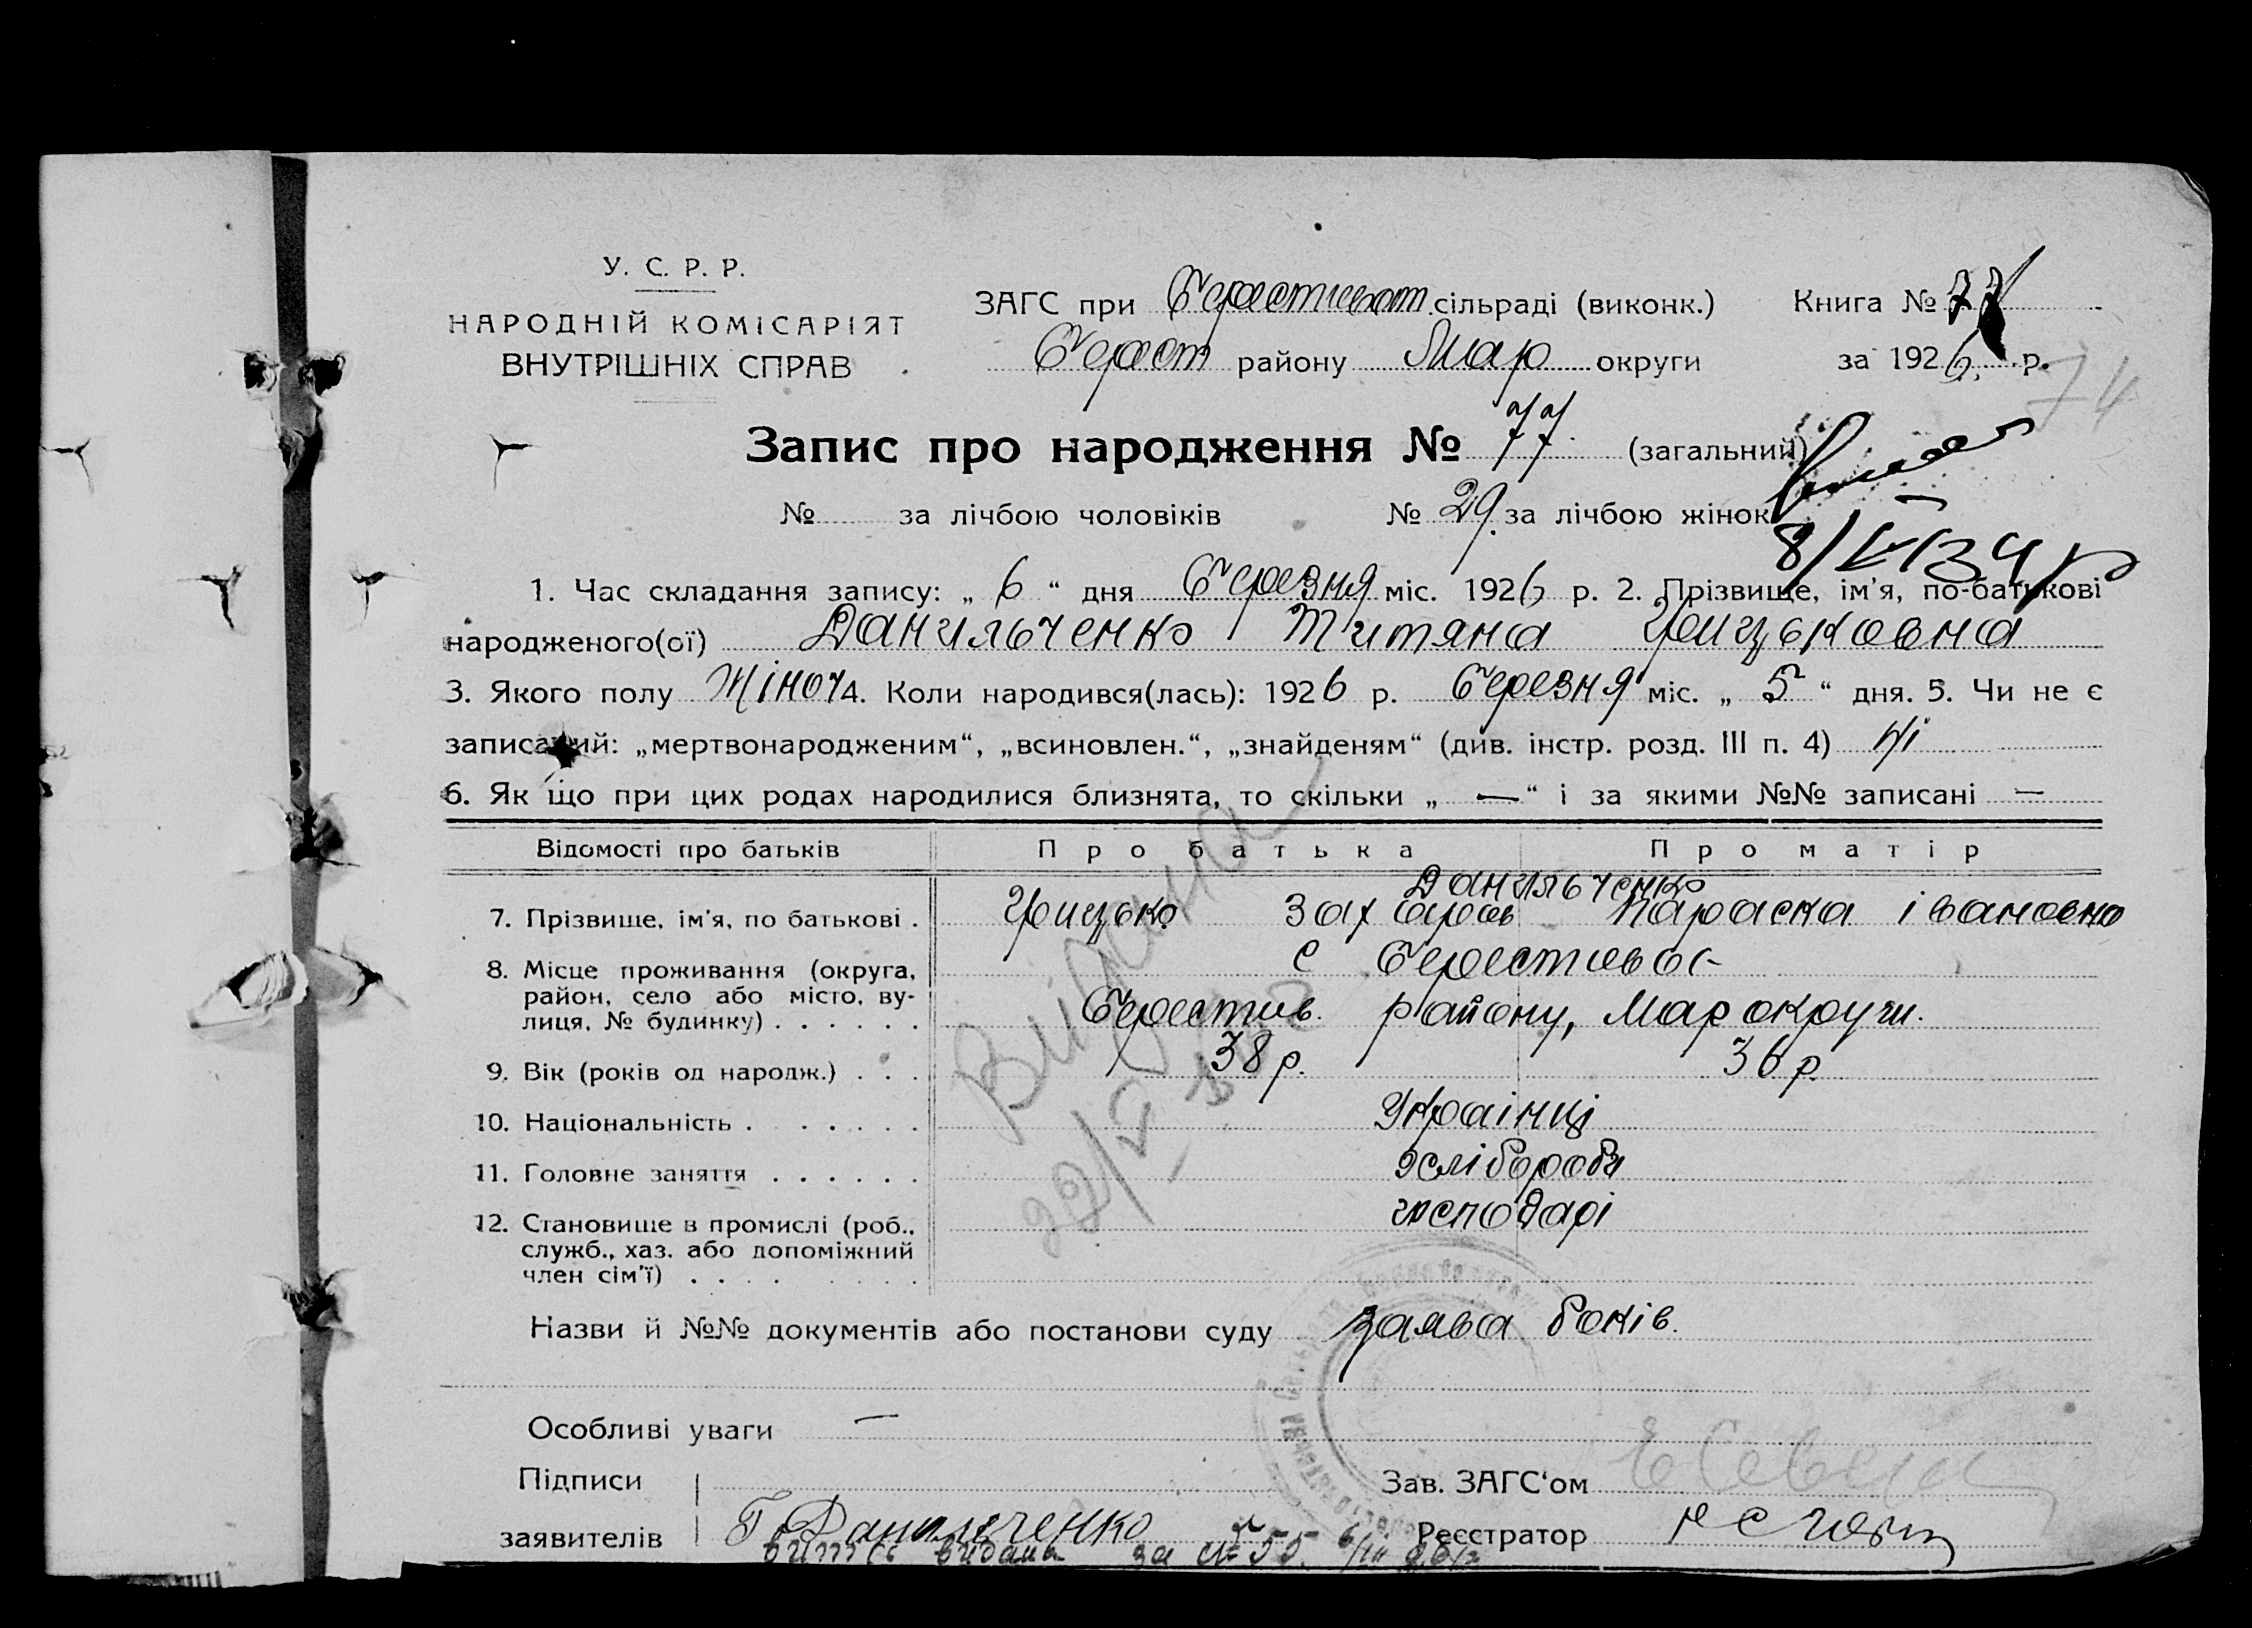 У. С. Р. Р.
НАРОДНІЙ КОМІСАРІЯТ
ВНУТРІШНІХ СПРАВ
ЗАГС при Берестивот сільраді (виконк.)
Берест району Мар округи
Книга № 77
за 1926 р.
74
Запис про народження № 77. (загальний)
№ за лічбою чоловіків № 29. за лічбою жінок
1. Час складання запису: „ 6 “ дня Березня міс. 1926 р. 2. Прізвище, ім'я, по-батькові
народженого(ої) Данильченко Титяна Грицьковна
3. Якого полу Жіноч 4. Коли народився(лась): 1926 р. Березня міс. „ 5 “ дня. 5. Чи не є
записаний: „мертвонародженим“, „всиновлен.“, „знайденям“ (див. інстр. розд. III п. 4) Ні
6. Як що при цих родах народилися близнята, то скільки „ — “ і за якими №№ записані —
Відомості про батьків Про батька Про матір
Данильченко
7. Прізвище, ім'я, по батькові . Грицько Захаров Параска Івановна
8. Місце проживання (округа, район, село або місто, вулиця, № будинку) . . . . . .
с Берестивос
Берестив. району, Мар округи.
9. Вік (років од народж.) . . . 38 р. 36 р.
10. Національність . . . . . . Українці
11. Головне заняття . . . . . . хлібороби
12. Становище в промислі (роб., служб., хаз. або допоміжний член сім'ї) . . . . господарі
Видана
Назви й №№ документів або постанови суду заява боків.
Особливі уваги —
Підписи
заявителів Г Данильченко
Зав. ЗАГС'ом
Реєстратор
випись видана за № 55.